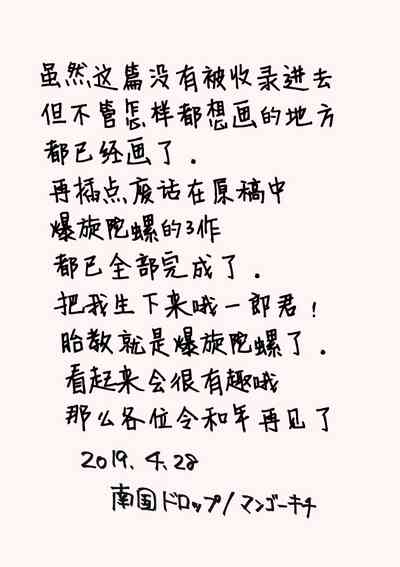 虽然这篇没有被收录进去
但不管怎样都想画的地方
都已经画了.
再插点废话在原稿中
爆旋陀螺的3作
都已全部完成了.
把我生下来哦一郎君!
胎教就是爆旋陀螺了.
看起来会很有趣哦
那么各位令和年再见了
2019. 4. 28
南国ドロップ/マンゴーキチ